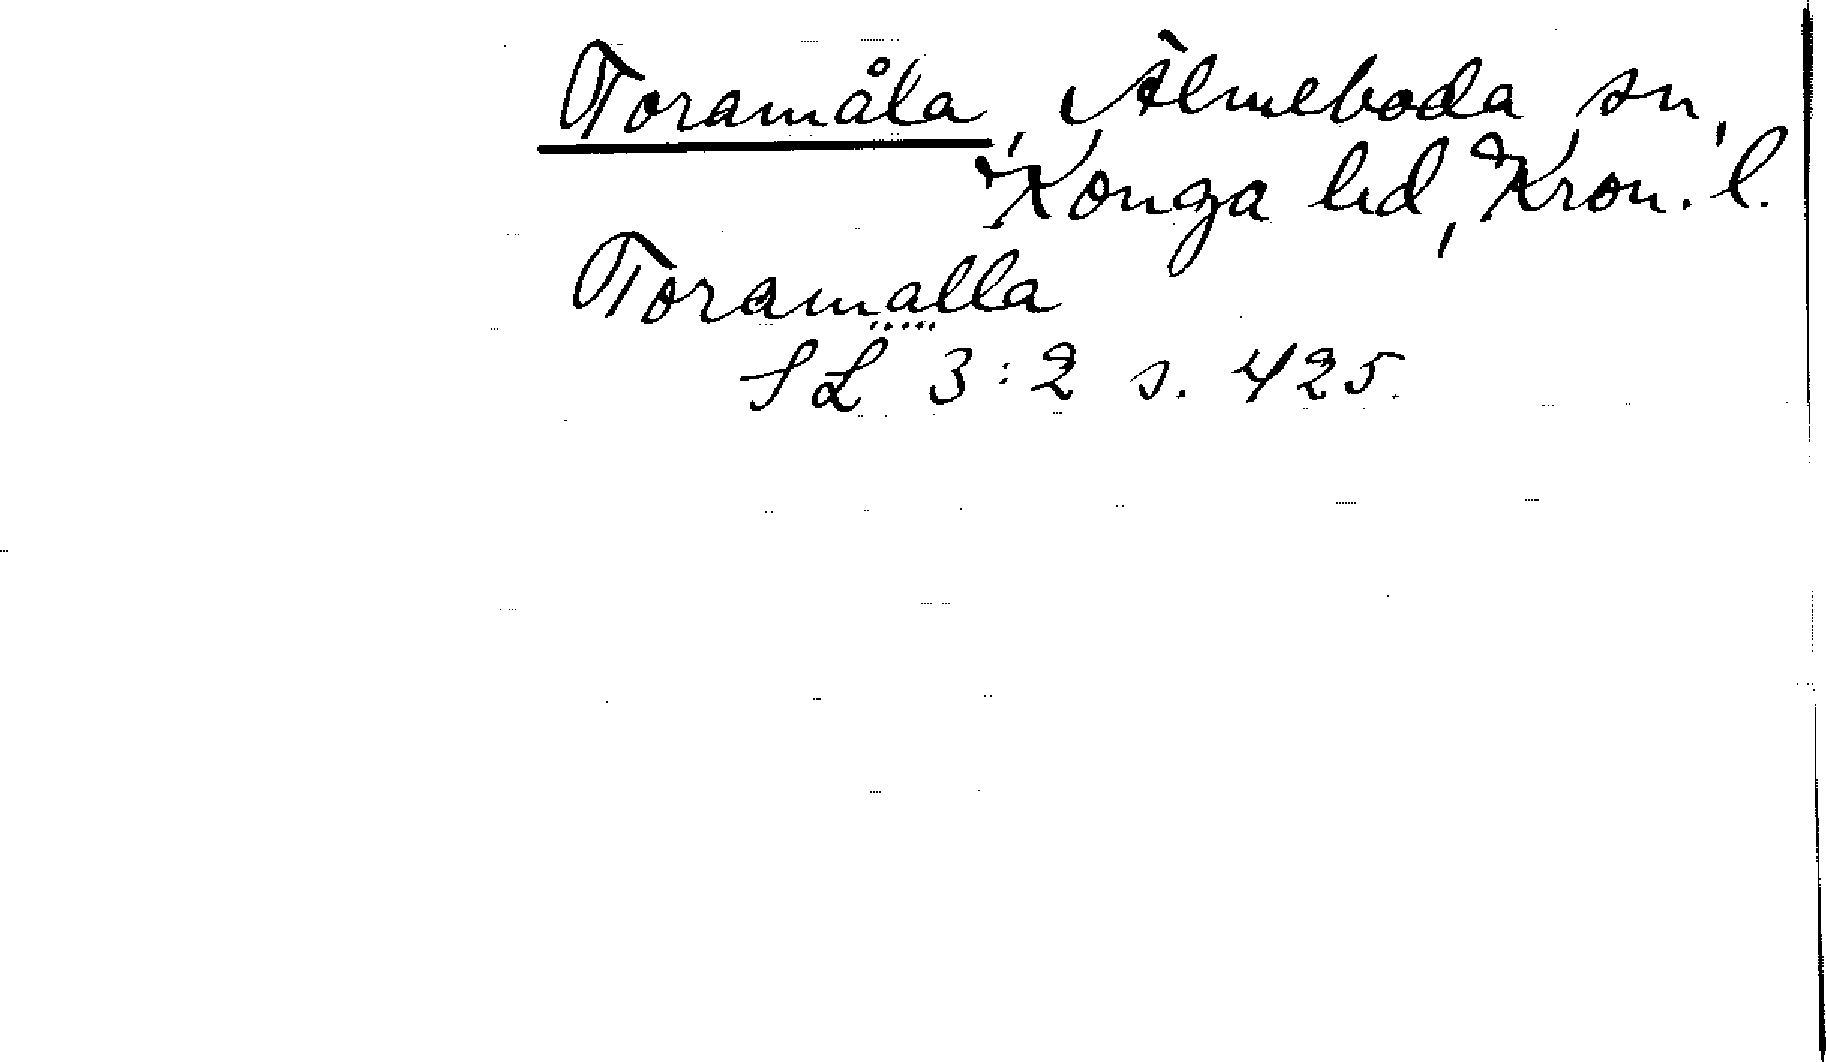 Toramåla, Älmeboda sn,
Konga hd, Kron. l.
Toramalla
SL 3:2 s. 425.